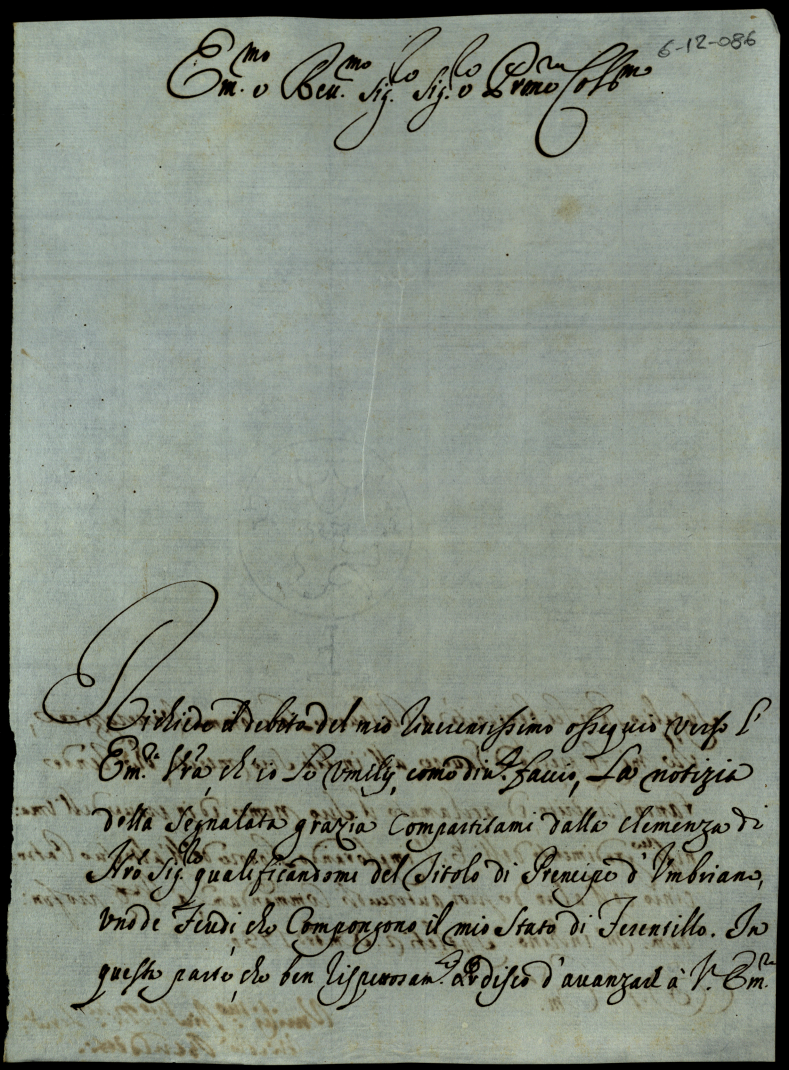 6-12-086
Em.mo e Reu.mo Sig.re Sig.re e Prone Col.mo
Richiede il debito del mio riuerentissimo ossequio verso l'
Em.za Vra, ch'io Le Vmilij, come diu.te faccio, La notizia
della Segnalata grazia Compartitami dalla Clemenza di
Nro Sig.re qualificandomi del Titolo di Prencipe d'Vmbriano,
vno de Feudi che Compongono il mio Stato di Ferentillo. In
questa parte, che ben rispettosam.te ardisco d'auanzare à V. Em.za